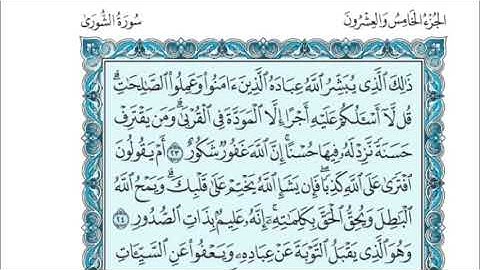 الجُزْءُ الخَامِسُ وَالعِشْرُونَ
سُورَةُ الشُّورَىٰ
ذَٰلِكَ ٱلَّذِى يُبَشِّرُ ٱللَّهُ عِبَادَهُ ٱلَّذِينَ ءَامَنُوا۟ وَعَمِلُوا۟ ٱلصَّٰلِحَٰتِ ۗ
قُل لَّآ أَسْـَٔلُكُمْ عَلَيْهِ أَجْرًا إِلَّا ٱلْمَوَدَّةَ فِى ٱلْقُرْبَىٰ ۗ وَمَن يَقْتَرِفْ
حَسَنَةً نَّزِدْ لَهُۥ فِيهَا حُسْنًا ۚ إِنَّ ٱللَّهَ غَفُورٌ شَكُورٌ ٢٣ أَمْ يَقُولُونَ
ٱفْتَرَىٰ عَلَى ٱللَّهِ كَذِبًا ۖ فَإِن يَشَإِ ٱللَّهُ يَخْتِمْ عَلَىٰ قَلْبِكَ ۗ وَيَمْحُ ٱللَّهُ
ٱلْبَٰطِلَ وَيُحِقُّ ٱلْحَقَّ بِكَلِمَٰتِهِۦٓ ۚ إِنَّهُۥ عَلِيمٌۢ بِذَاتِ ٱلصُّدُورِ ٢٤
وَهُوَ ٱلَّذِى يَقْبَلُ ٱلتَّوْبَةَ عَنْ عِبَادِهِۦ وَيَعْفُوا۟ عَنِ ٱلسَّيِّـَٔاتِ